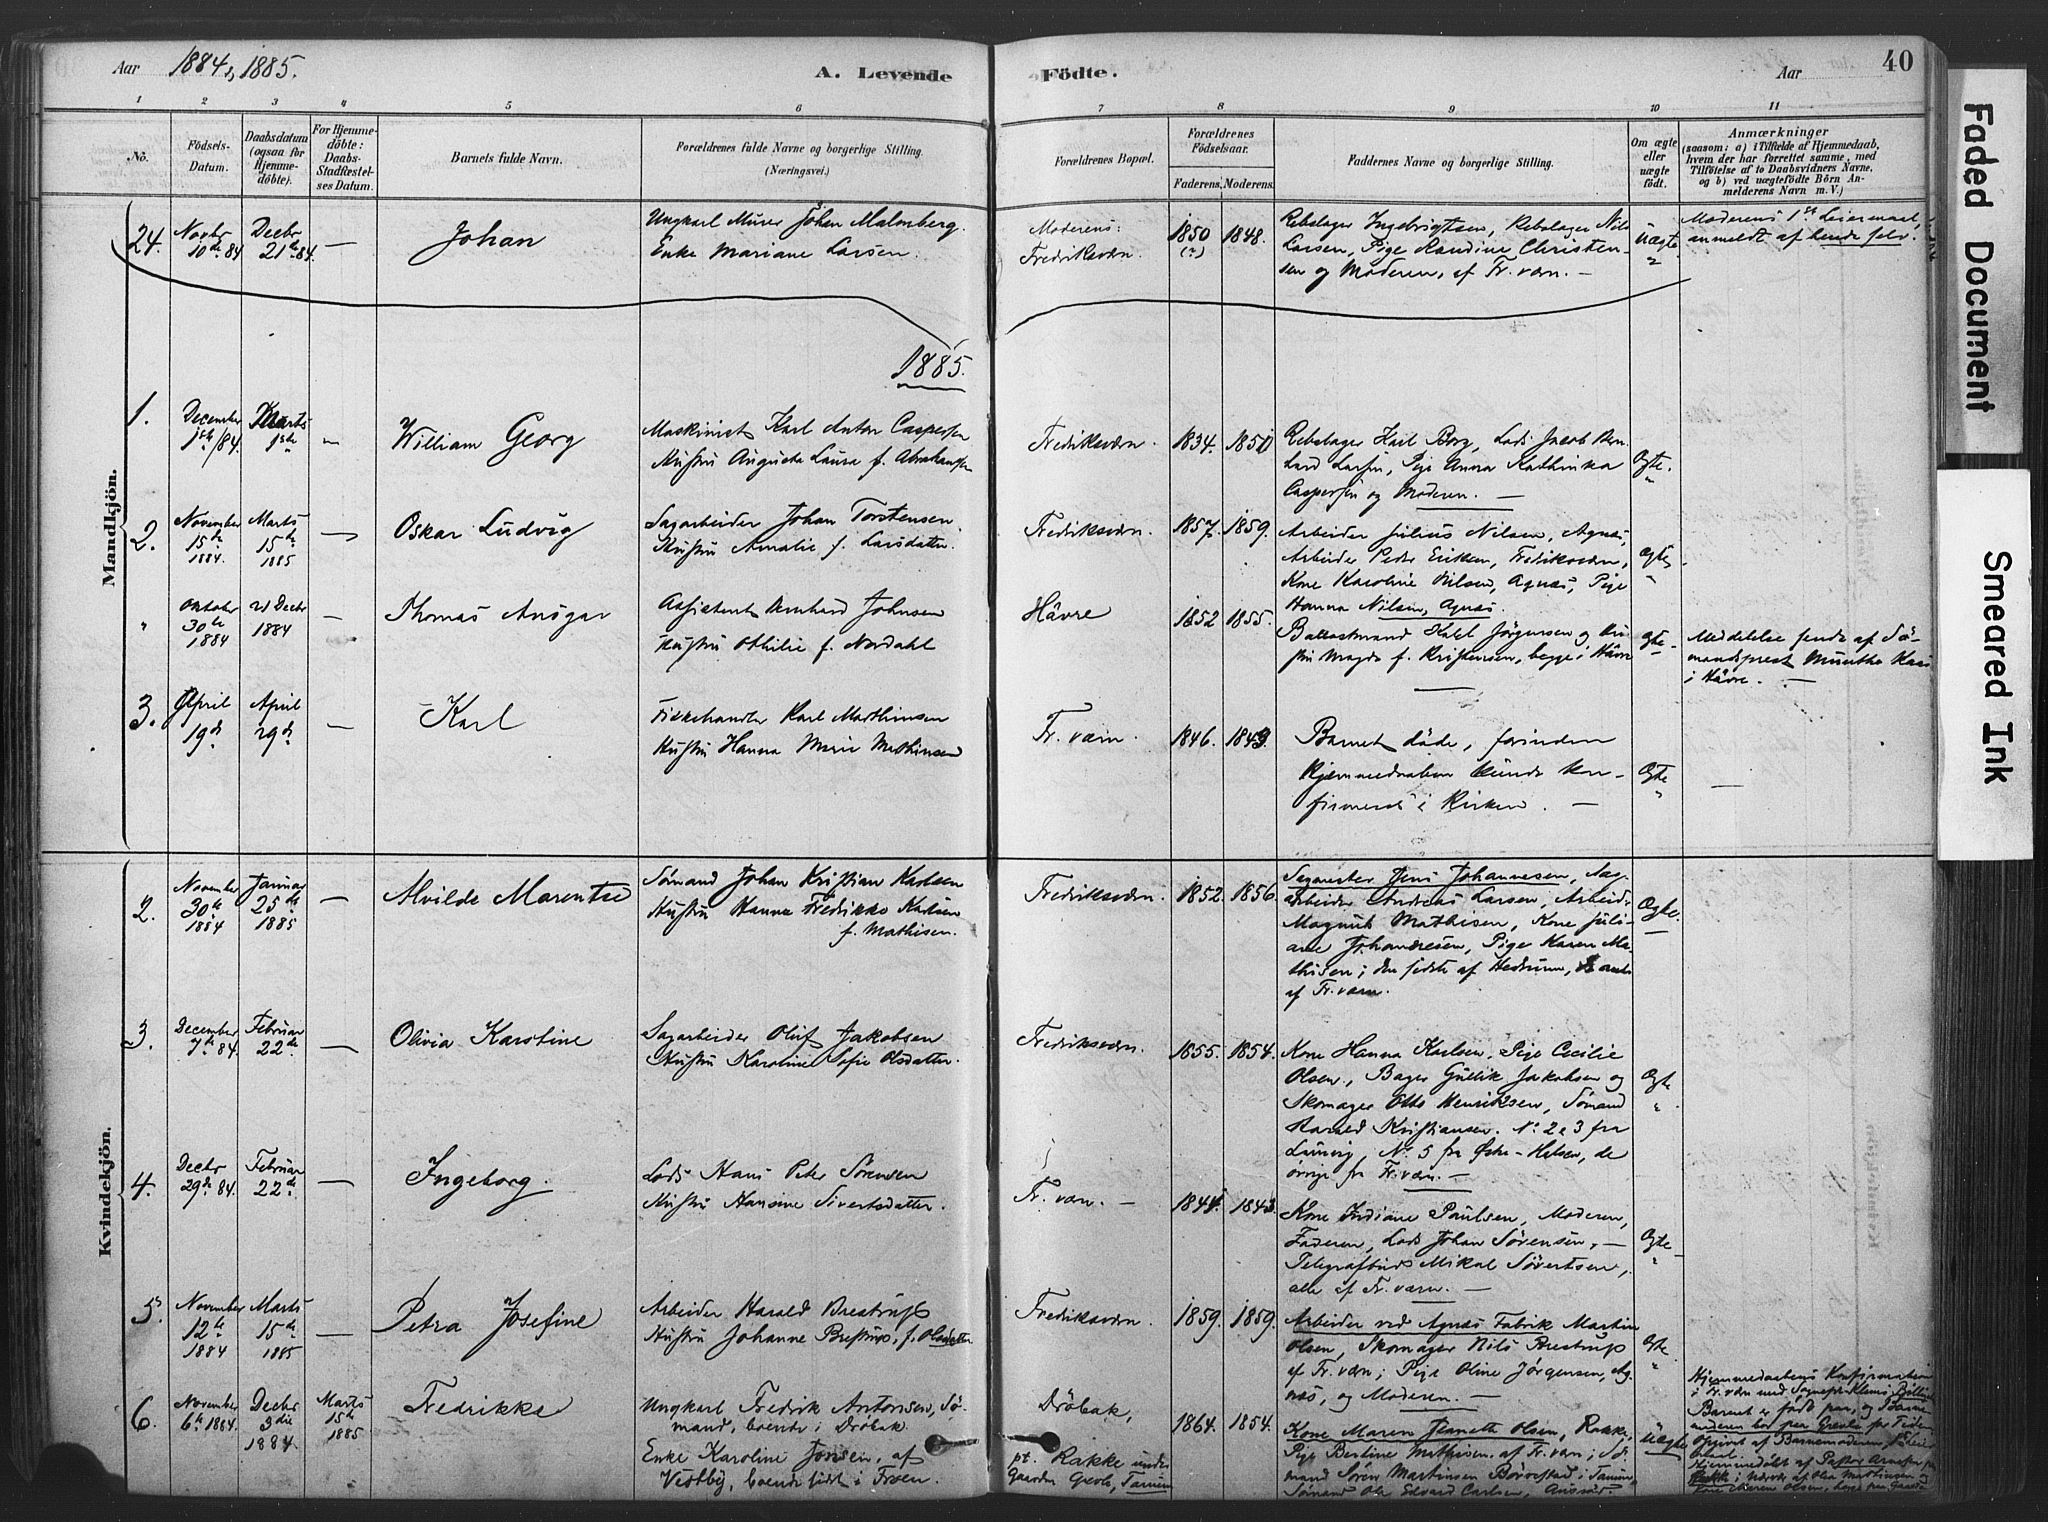 Aar 1884, 1885.
A. Levende Födte.
Aar
40
1 2 3 4 5 6 7 8 9 10 11
No.
Födsels-Datum.
Daabsdatum (ogsaa for Hjemme-döbte).
For Hjemme-döbte: Daabs-Stadfæstel-ses Datum.
Barnets fulde Navn.
Forældrenes fulde Navne og borgerlige Stilling.
(Næringsvei.)
Forældrenes Bopæl.
Forældrenes Födselsaar.
Faderens. Moderens.
Faddernes Navne og borgerlige Stilling.
Om ægte eller uægte födt.
Anmærkninger
(saasom: a) i Tilfælde af Hjemmedaab,
hvem der har forrettet samme, med
Tilföielse af to Daabsvidners Navne,
og b) ved uægtefödte Börn An-
melderens Navn m. V.)
Mandkjön.
24.
Novbr 10de 84
Decbr 21de 84.
—
Johan
Ungkarl Murer Johan Malmberg.
Enke Mariane Larsen.
Moderens:
Fredriksværn.
1850 (?)
1848.
Rebslager Ingebrigtsen, Rebslager Nils
Larsen, Pige Randine Christen-
sen og Moderen, af Fr. værn. —
Uægte
Moderens 1ste Leiermaal,
anmeldt af hende selv.
1885.
1.
December 1ste/84.
Marts 1ste
William Georg
Maskinist Karl Anton Caspersen
Hustru Augusta Laura f. Abrahamsen
Fredriksværn.
1834. 1850
Rebslager Karl Borg, Lods Jacob Bern-
hard Larsen, Pige Anna Kathinka
Caspersen og Moderen. —
Ægte.
2.
November 15de 1884.
Marts 15de 1885
—
Oskar Ludvig
Sagarbeider Johan Torstensen.
Hustru Amalie f. Larsdatter.
Fredriksværn.
1857. 1859.
Arbeider Julius Nilsen, Agnæs,
Arbeider Peder Eriksen, Fredriksværn,
Kone Karoline Nilsen, Agnæs, Pige
Hanna Nilsen, Agnæs.
Ægte
"
Oktober 30te 1884
Decbr 1884
—
Thomas Ansgar
Assistent Bernhard Johnsen
Hustru Othilie f. Nordahl
Håvre
1852 1855.
Jörgensen og Hu-
stru Magda f. Kristensen, begge i Håvre
Ægte
Meddelelse sendt af Sø-
mandsprest Munthe Kaas
i Håvre. —
3.
April 19de
April 29de
—
Karl
Fiskehandler Karl Marthinsen
Hustru Hanna Marie Mathinsen
Fr. værn.
1846. 1843.
Barnet döde, forinden
Hjemmedaaben kunde kon-
firmeres i Kirken. —
Ægte
—
Kvindekjön.
2.
November 30te 1884
Januar 25de 1885
—
Alvilde Marentse
Sømand Johan Kristian Karlsen
Hustru Hanna Fredrikke Karlsen
f. Mathisen.
Fredriksværn.
1852. 1856.
Sagmester Jens Johannesen, Sag-
arbeider Andreas Larsen, Arbeider
Magnus Mathisen, Kone Juli-
ane Johannesen, Pige Karen Ma-
thisen; den sidste af Hedrum, de andre
af Fr. værn.
Ægte.
3.
December 7de 84.
Februar 22de
—
Olivia Karstine
Sagarbeider Oluf Jakobsen
Hustru Karoline Sofie Olsdatter.
Fredriksværn.
1855. 1854.
Kone Hanna Karlsen, Pige Cecilie
Olsen, Bager Gullik Jakobsen og
Skomager Otto Henriksen, Sømand
Harald Kristiansen. No 2 & 3 fra
Laurvig, No 5 fra Østre-Halsen, de
øvrige fra Fr. værn. —
Ægte
4.
Decbr 29de 84.
Februar 22de
—
Ingeborg.
Lods Hans Peter Sørensen
Hustru Hansine Sivertsdatter.
Fr. værn. —
1844. 1843.
Kone Indiane Paulsen, Moderen,
Faderen, Lods Johan Sørensen, —
Telegrafbud Mikal Sivertsen,
alle af Fr. værn. —
Ægte
5.
November 12te 1884
Marts 15de 1885
—
Petra Josefine
Arbeider Harald Brestrup
Hustru Johanne Brestrup, f. Olsdatter
Fredriksværn.
1859. 1859.
Arbeider ved Agnæs Fabrik Martin
Olsen, Skomager Nils Brestrup
af Fr. værn; Pige Oline Jørgensen, Ag-
næs, og Moderen. —
Ægte
6.
November 6te 1884.
Decbr 3die 1884.
Marts 15de 1885
Fredrikke
Ungkarl Fredrik Antonsen, Sø-
mand, boende i Dröbak
Enke Karoline Jonsen, af
Vestby, boende sidst i Froen.
Dröbak,
pt. Rakke under
Gaarden
1864. 1854.
Kone Maren Jeaneth Olsen, Rakke,
Pige Bertine Mathisen af Fr. værn; Sø-
mand Søren Martinsen
Sømand Ole Edvard Carlsen,
Uægte
Hjemmedaabens Konfirmation
i Fr. værn
Barnet er født paa, og Barne-
moderen bor paa
Opgivet af Barnemoderen
Hjemmedøbt af
Faded Document
Smeared Ink